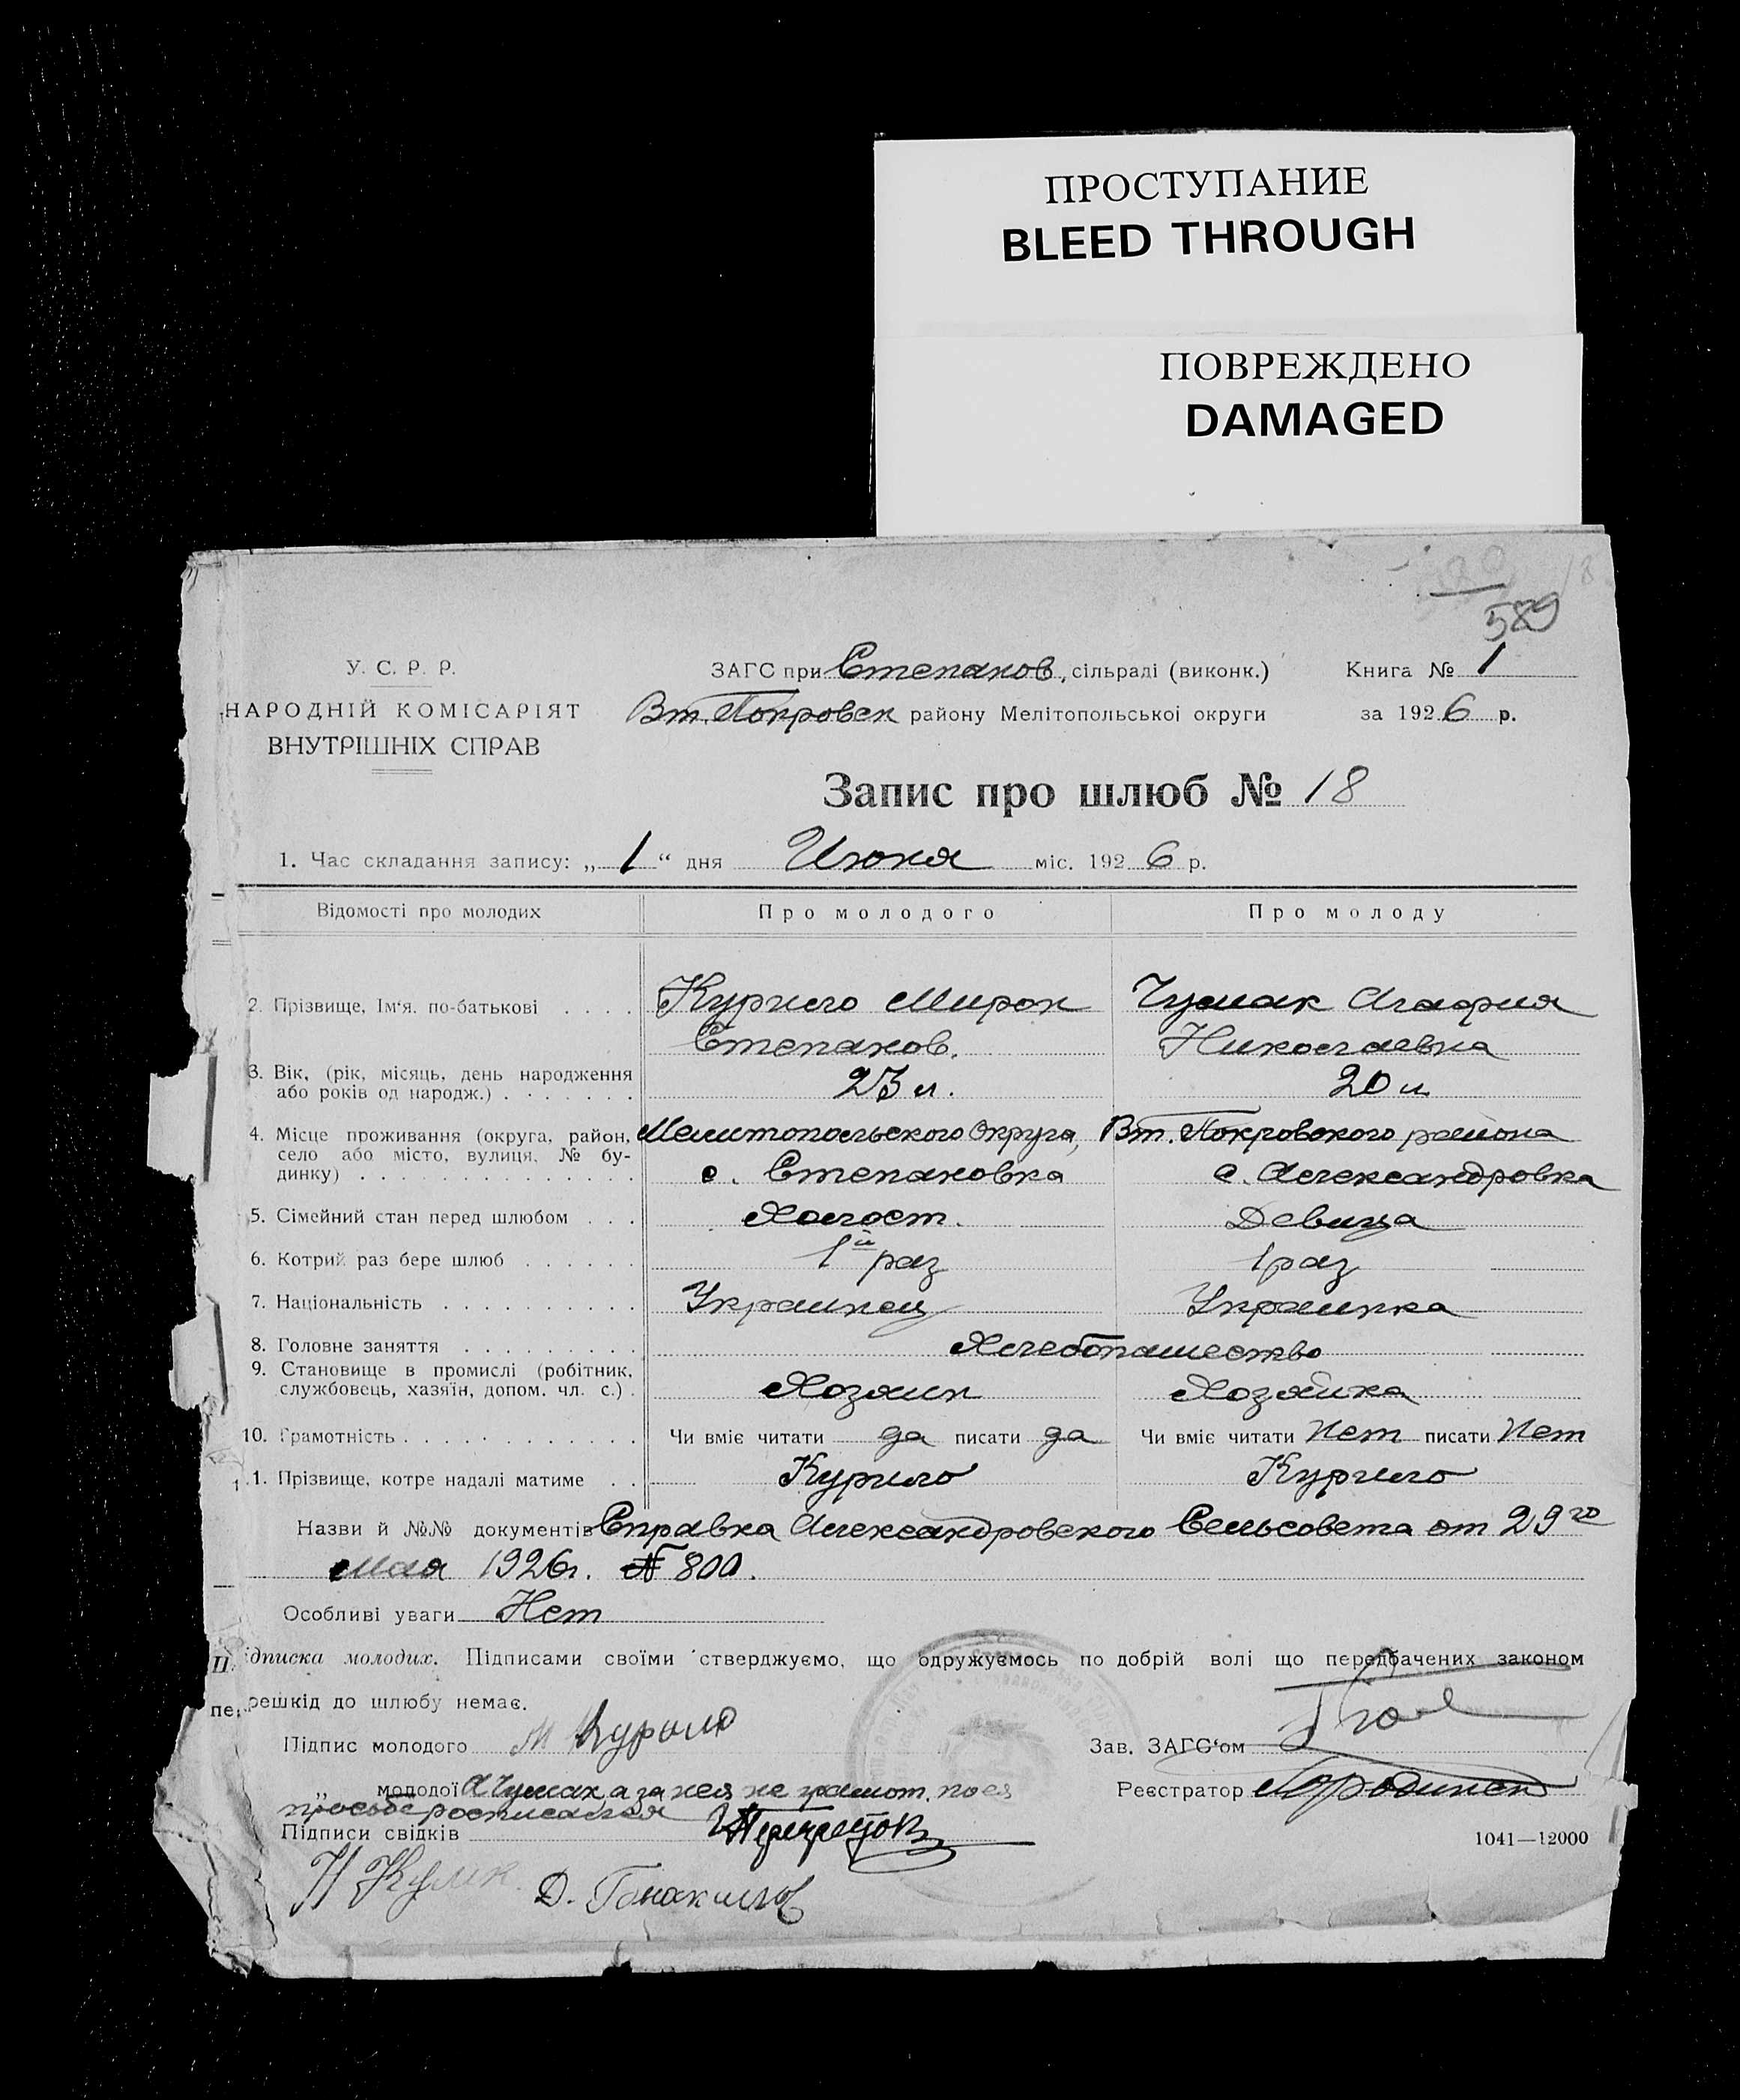 ПРОСТУПАНИЕ
BLEED THROUGH
ПОВРЕЖДЕНО
DAMAGED
589
У. С. Р. Р.
НАРОДНІЙ КОМІСАРІЯТ
ВНУТРІШНІХ СПРАВ
ЗАГС при Степанов, сільраді (виконк.)
Вт. Покровск району Мелітопольської округи
Книга № 1
за 1926 р.
Запис про шлюб № 18
1. Час складання запису: „1“ дня Июня міс. 1926 р.
Відомості про молодих Про молодого Про молоду
2. Прізвище, Ім'я, по-батькові . . . . Курило Мирон Чумак Агафия
Степанов. Николаевна
3. Вік, (рік, місяць, день народження
або років од народж.) . . . . . . . 23 л. 20 л
4. Місце проживання (округа, район, Мелитопольского Округа, Вт. Покровского района
село або місто, вулиця, № бу- с. Степановка с. Александровка
динку) . . . . . . . . . . . . . .
5. Сімейний стан перед шлюбом . . . Холост. Девица
6. Котрий раз бере шлюб . . . . . . 1й раз 1 раз
7. Національність . . . . . . . . . . Украинец Украинка
8. Головне заняття . . . . . . . . . Хлебопашество
9. Становище в промислі (робітник,
службовець, хазяїн, допом. чл. с.) . Хозяин Хозяйка
10. Грамотність . . . . . . . . . . . . Чи вміє читати да писати да Чи вміє читати Нет писати Нет
1.1. Прізвище, котре надалі матиме . . Курило Курило
Назви й №№ документів Справка Александровского Сельсовета от 29го
мая 1926г. № 800.
Особливі уваги Нет
Підписка молодих. Підписами своїми стверджуємо, що одружуємось по добрій волі що передбачених законом
перешкід до шлюбу немає.
Підпис молодого М Курило
Зав. ЗАГС'ом
„ молодої А Чумак, а за нея не грамот. по ея
просьбе росписался
Реєстратор
Підписи свідків
1041—12000
Н Кулик
Д.